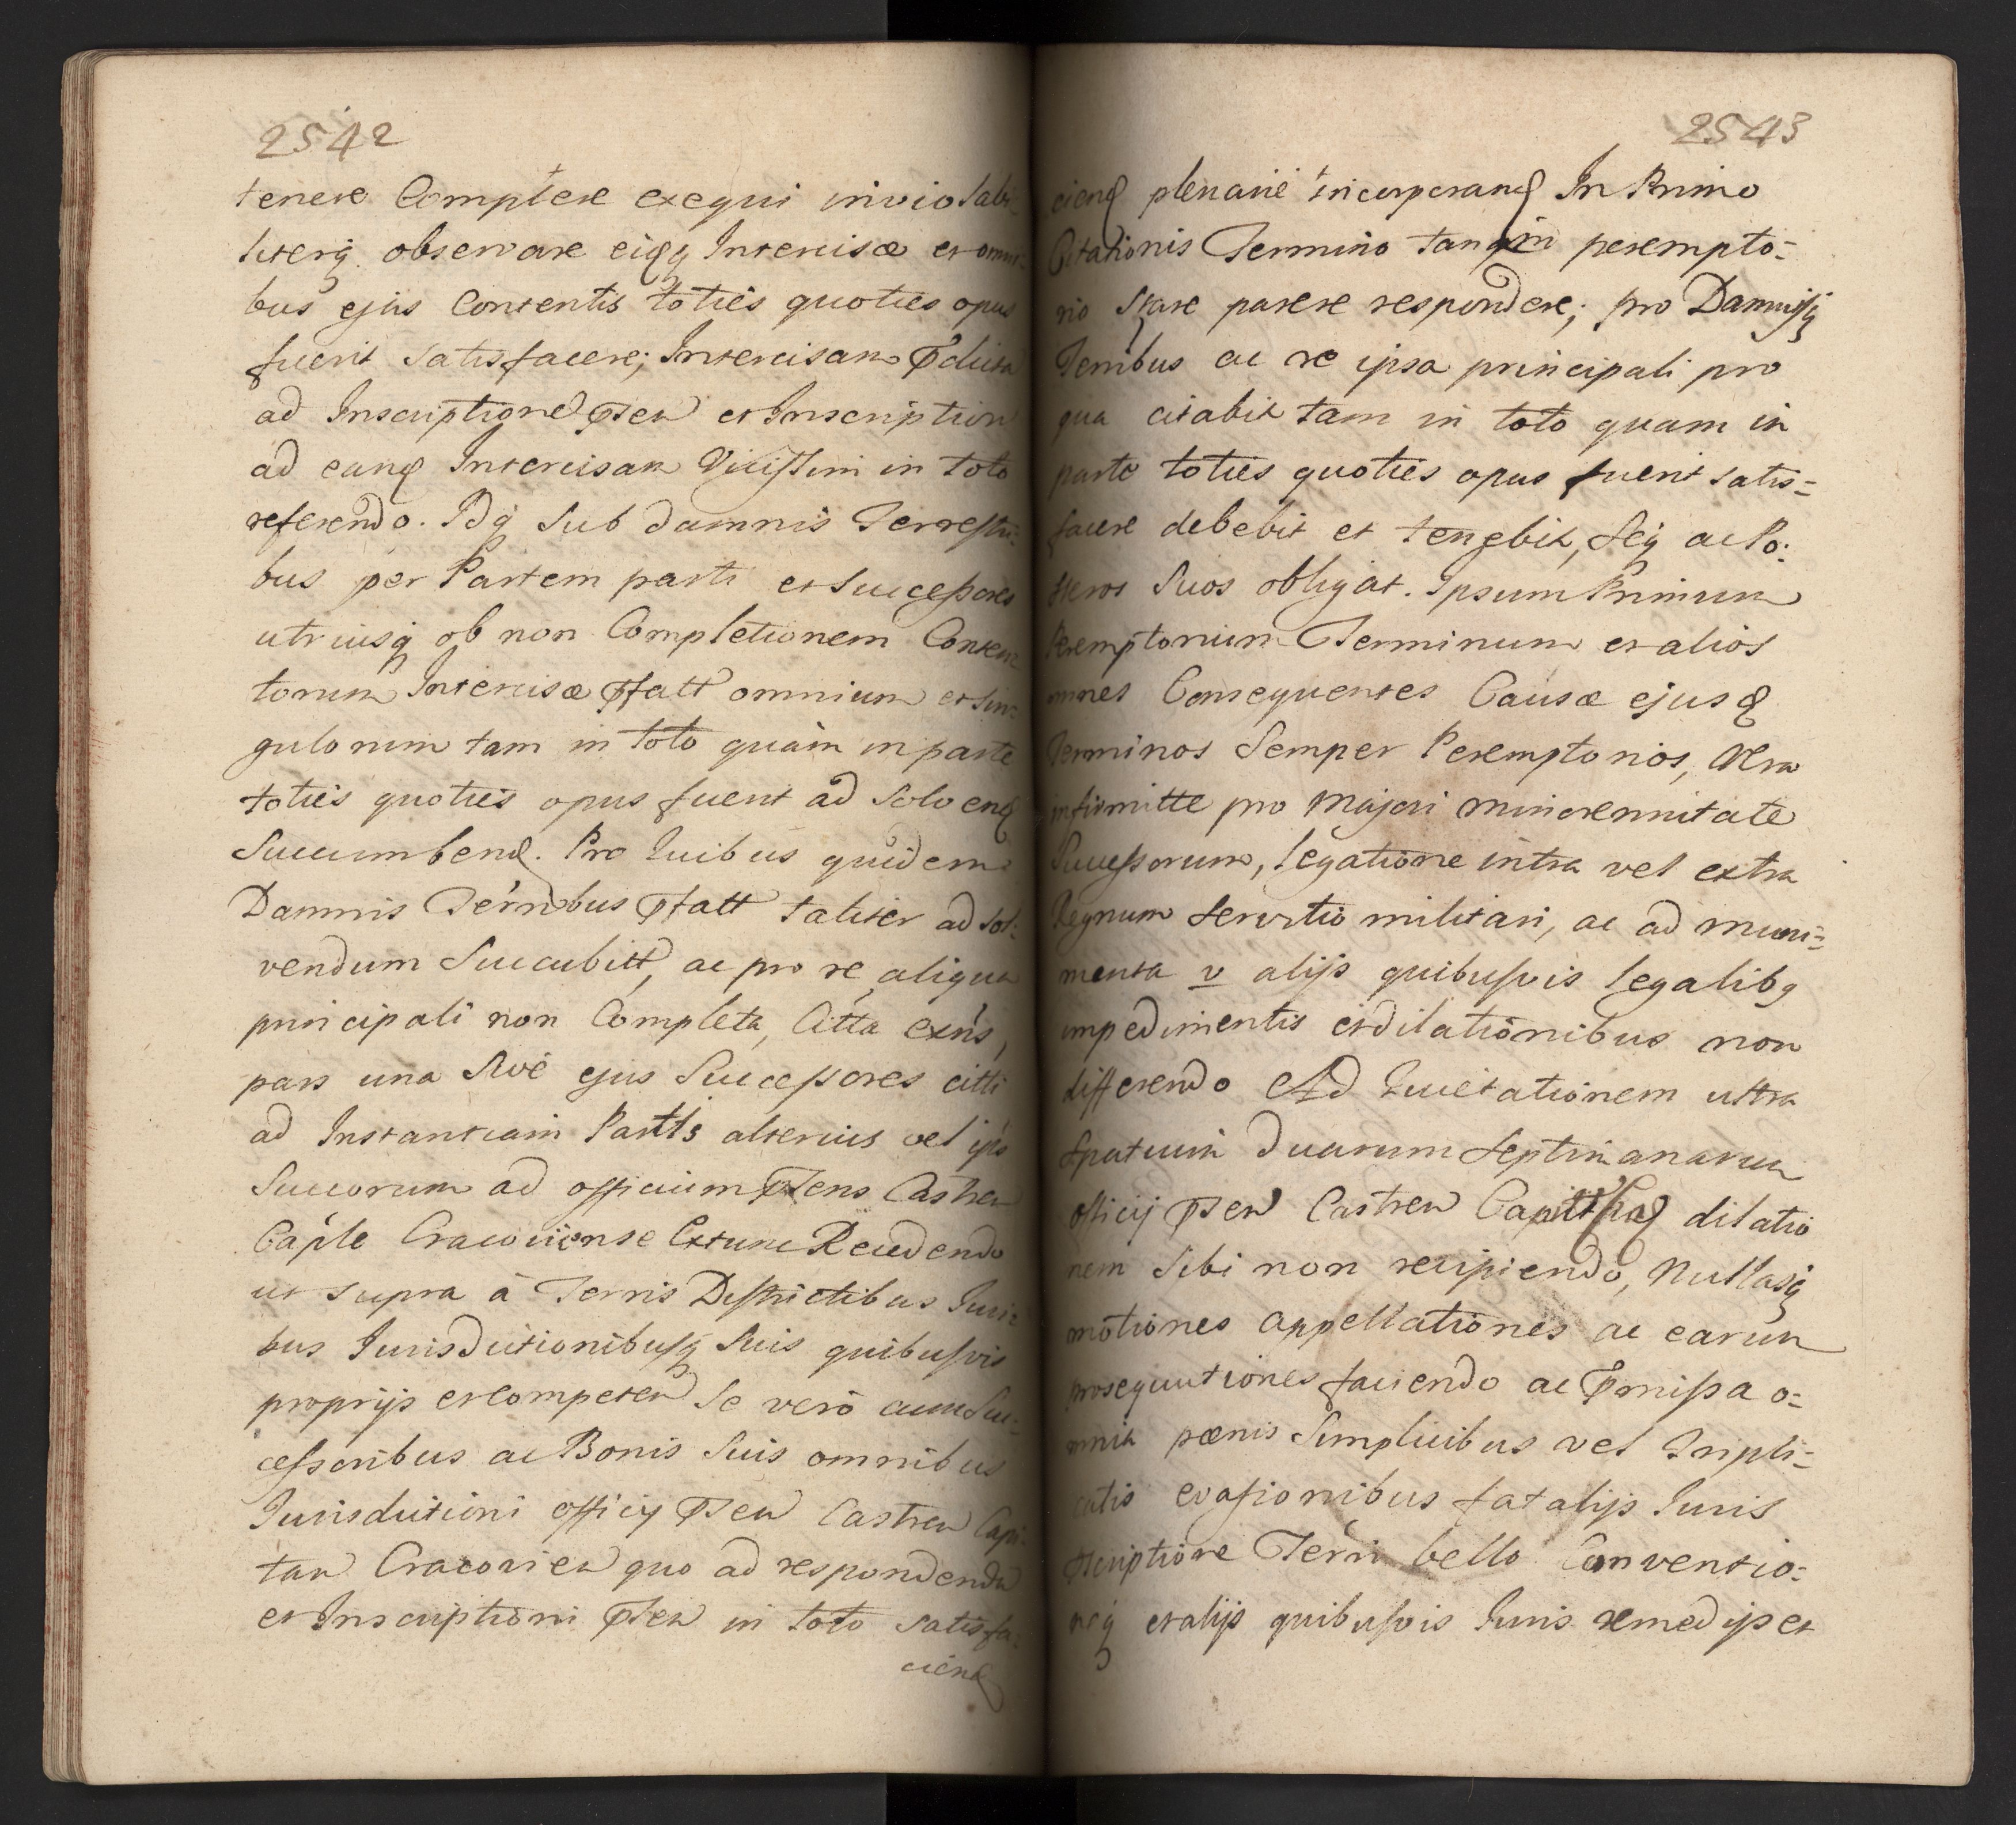 2542
tenere Complere exequi inviolabi
literq observare eidq Intercisæ et omni
bus ejus Contentis toties quoties opus
fuerit satisfacere; Intercisam
ad Inscriptione et Inscription
ad eand Intercisam Vicissim in toto
referendo. Idq sub damnis Terrestri
bus per Partem parti et Successores
utriusq ob non Completionem Conten
torum Intercisæ pfatt omnium et sin=
gulorum tam in toto quàm in parte
toties quoties opus fuerit ad solvend
Succumbend. Pro Quibus quidem
Damnis Ternbus pfatt taliter ad sol:
vendum Succubitt, ac pro re aliqua
principali non Completa, Citta exns,
pars una sive ejus Successores citti
ad Instantiam Partis alterius vel ips
Succorum ad officium psens Castren
Caple Cracoviense Extunc Recedendo
ut supra à Terris Districtibus Juri=
bus Jurisdictionibusq suis quibusvis
proprijs et Competen Se verò cum Suc=
cessoribus ac Bonis Suis omnibus
Jurisdictioni officij psen Castren Capi
tan Cracovien quo ad respondendu
et Inscriptioni psen in toto satisfa=
ciend
2543
ciend plenarie incorporand In Primo
Citationis Termino tanqm perempto=
rio Stare parere respondere; pro Damnisq
Ternibus ac re ipsa principali pro
qua citabit tam in toto quam in
parte toties quoties opus fuerit satis=
facere debebit et tenebit, seq ac Po:
steros Suos obligat. Ipsum Primum
Peremptorium Terminum et alios
omnes Consequentes Causæ ejusd
Terminos Semper Peremptorios,
infirmitte pro majori minorennitate
Successorum, legatione intra vel extra
Regnum servitio militari, ac ad muni=
menta v alijs quibusvis legalibq
impedimentis et dilationibus non
differendo Ad Quietationem ultra
spatium duarum septimanarum
officij psen Castren dilatio
nem Sibi non recipiendo, Nullasq
motiones appellationes ac earum
prosequutiones faciendo ac pmissa o=
mnia pænis Simplicibus vel Tripli=
catis evasionibus fatalijs Juris
pscriptione Terri bello Conventio=
neq et alijs quibusvis Juris remedijs et